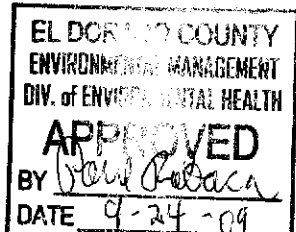 EL DORADO COUNTY
ENVIRONMENTAL MANAGEMENT
DIV. of ENVIRONMENTAL HEALTH
APPROVED
BY
DATE 9-24-09